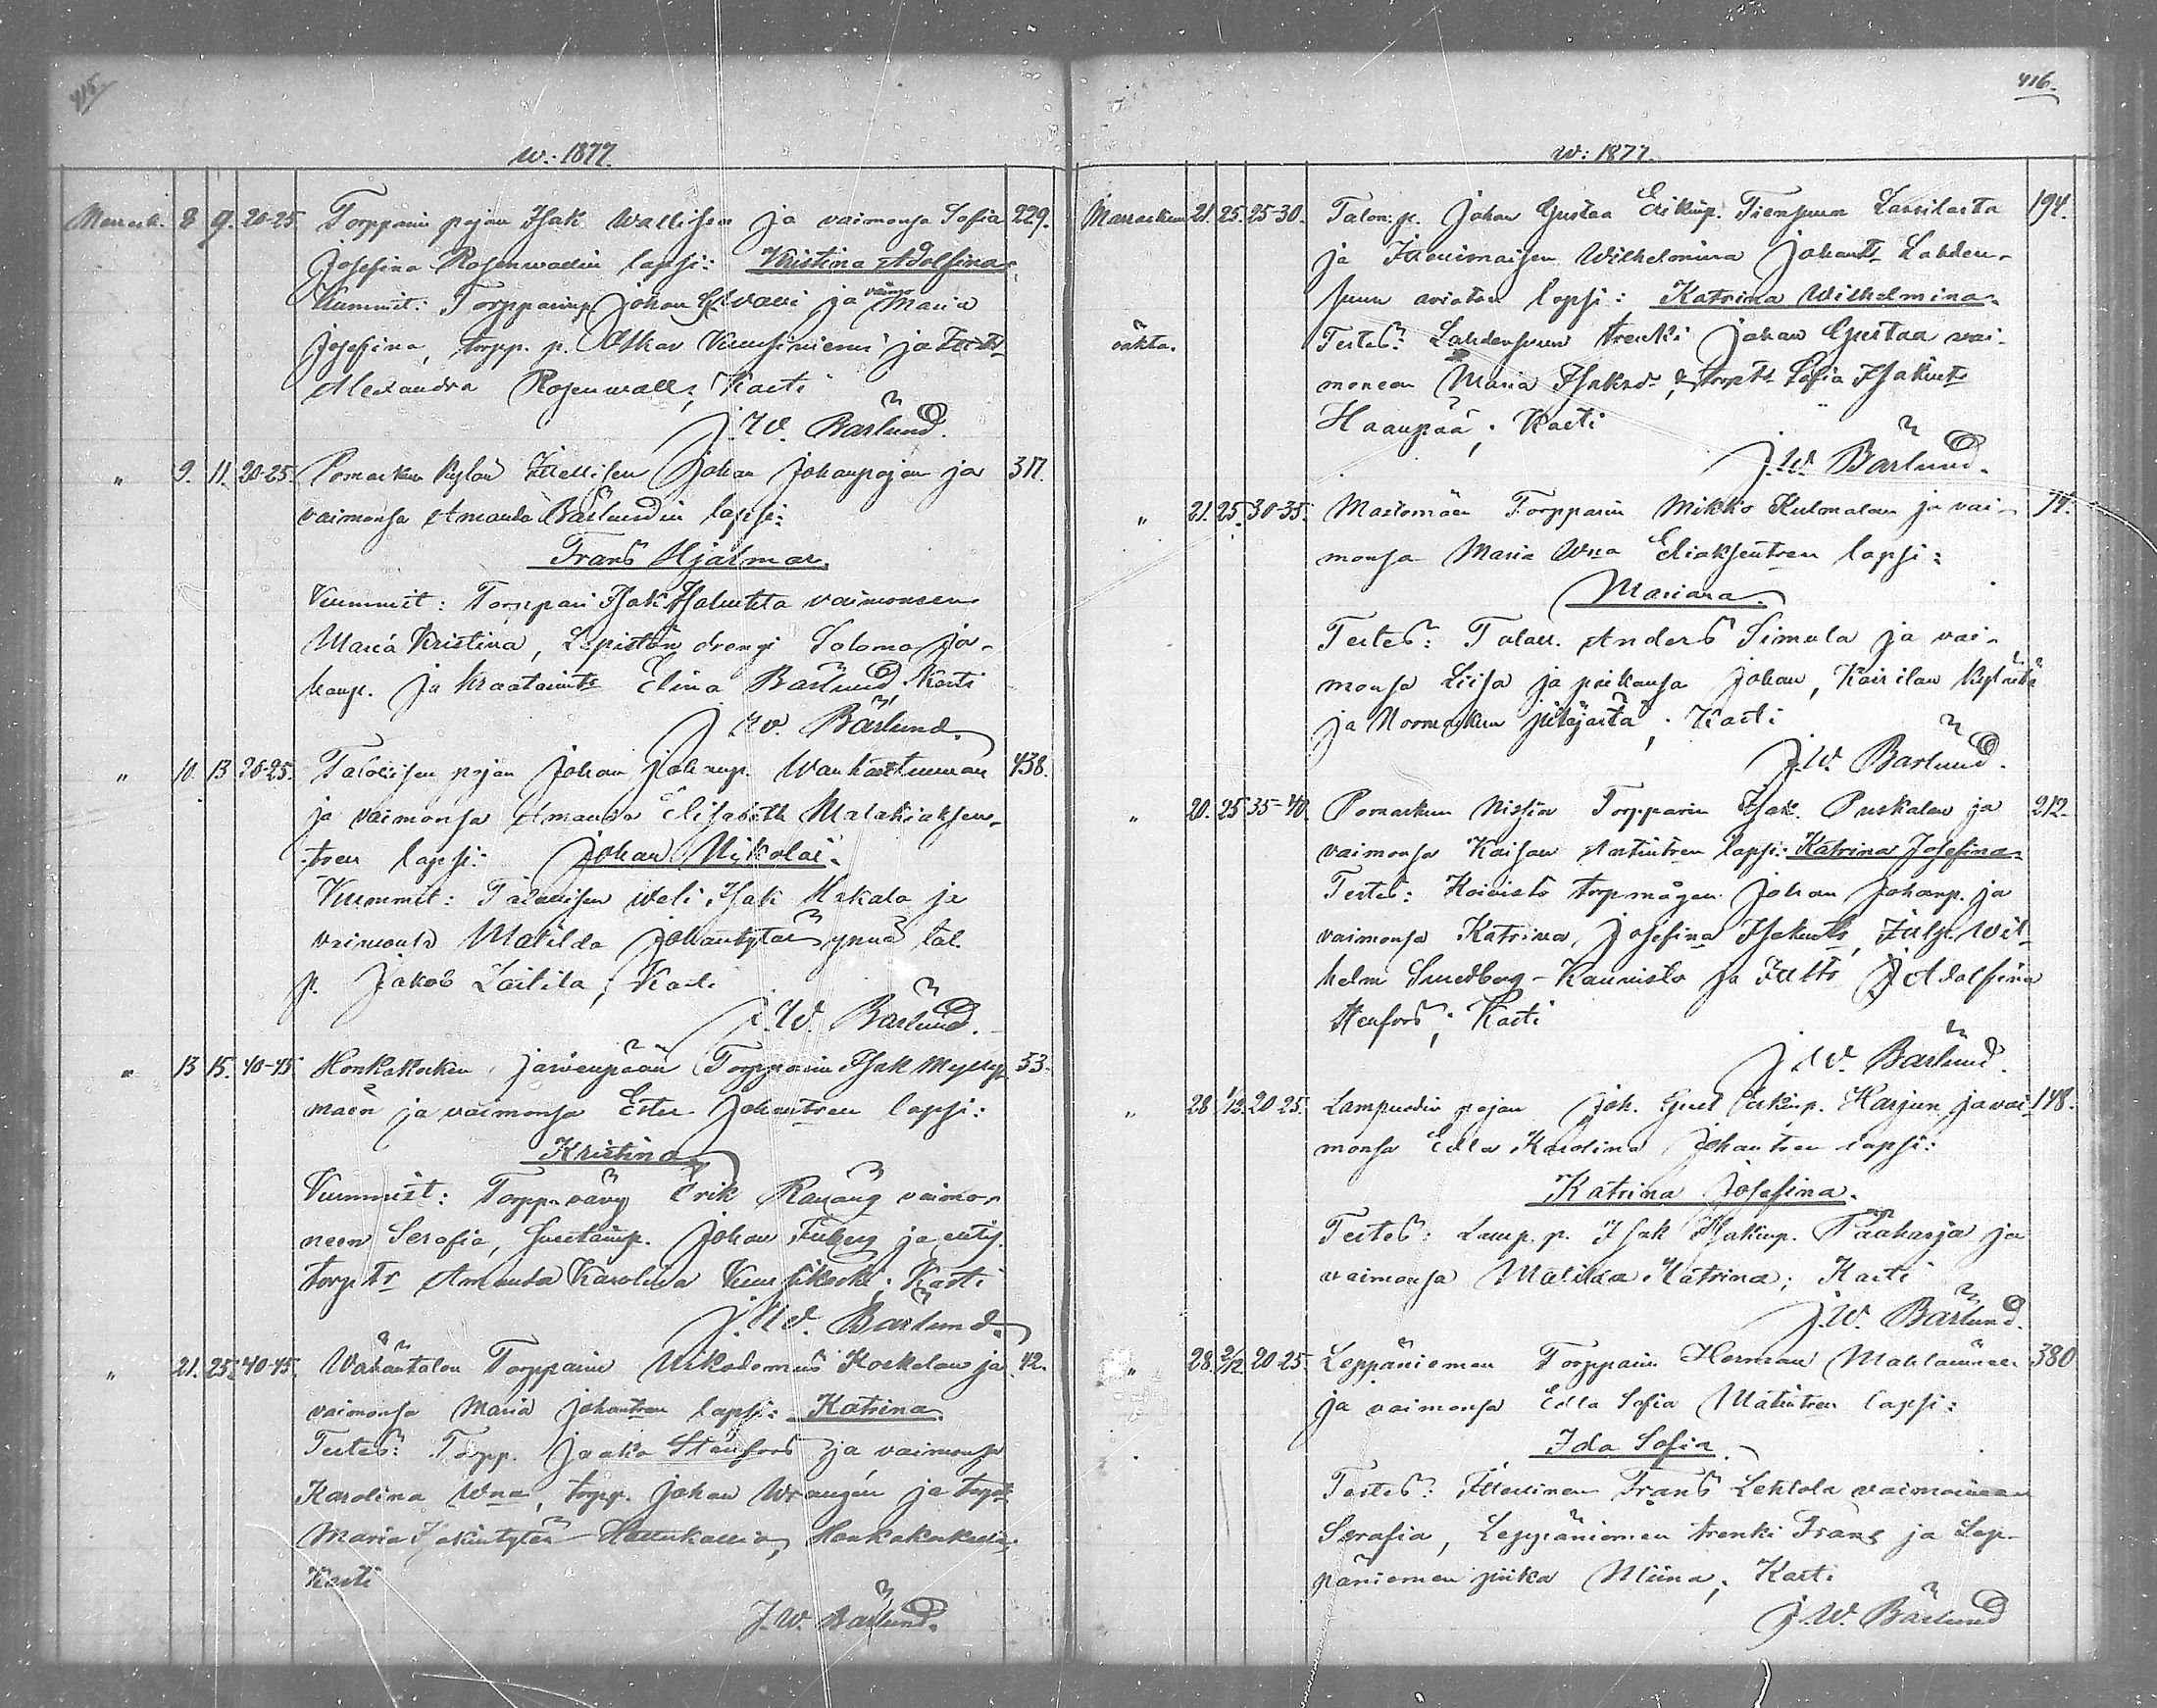 415.
w: 1877.
Marrask. 8 9. 20-25 Torpparin pojan Isak Wallisen ja vaimonsa Sofia 229.
Josefina Rosenwallin lapsi: Kristina Adolfina.
Kummit: Torpparinp. Johan ja vaimo Maria
Josefina, torpp. p. Oskar Kuusiniemi ja
Alexandra Rosenwall; Kasti
J. W. Bärlund.
" 9. 11. 20-25. Pomarkun kylän Itsellisen Johan Johanpojan ja 317.
vaimonsa Amanda Bärlundin lapsi:
Frans Hjalmar.
Kummit: Torppari Isak vaimonsen
Maria Kristina, Lepistön drengi Salomo Ja-
kanp. ja Elina Bärlund. Kasti
J. W. Bärlund.
" 10. 13 20-25. Talollisen pojan Johan Johanp. 438.
ja vaimonsa Amanda Elisabeth Malakiaksen-
tren lapsi: Johan Nikolai.
Kummit: Talollisen weli Isak Hakala ja
vaimonsa Matilda Johantytär ynnä tal.
p. Jakob Laitila; Kasti
J. W. Bärlund.
" 13 15. 40-45 Honkakosken Järvenpään Torpparin Isak Mylly- 53.
mäen ja vaimonsa Ester Johantren lapsi:
Kristina.
Kummit: Torpp. vävy Erik vaimo-
neen Serafia, Johan ja
torp. tr Amanda Karolina; Kasti
J. W. Bärlund.
" 21. 25. 40-45. Wähäntalon Torpparin Nikodemus Koskelan ja 42.
vaimonsa Maria Johantren lapsi: Katrina.
Testes: Torpp. Jaako Stenfors ja vaimonsa
Karolina Wna, torpp. Johan ja
Maria Honkakoskelta;
Kasti
J. W. Bärlund.
416.
w: 1877.
Marraskun 21. 25. 25-30. Talon. p. Johan Gustaa Erikinp. Tiensuun Lassilasta 194.
ja Itsenimaisen Wilhelmina Johants Lahden-
suun avioton lapsi: Katrina Wilhelmina.
äskta. Testes: Lahdensuun trenki Johan Gustaa vai-
moneen Maria Isaksdr & torpts Sofia Isakints
Haanpää; Kasti
J. W. Bärlund.
" 21. 25. 30-35. Mastomäen Torpparin Mikko Kulmalan ja vai- 77.
monsa Maria Wna Eliaksentren lapsi:
Mariana.
Testes: Talall. Anders Simula ja vai-
monsa Liisa ja poikansa Johan, Kairilan kylästä
ja Noormarkun pitäjästä; Kasti
J. W. Bärlund.
" 20. 25 35-40. Pomarkun Torpparin Isak Puskalan ja 212.
vaimonsa Kaisan Antintren lapsi: Katrina Josefina.
Testes: Koivisto torpmågen Johan Johanp. ja
vaimonsa Katrina Josefina Isakints, Wil-
helm Smedberg-Kaunisto ja Adolfina
Stenfors; Kasti
J. W. Bärlund.
" 28 1/12. 20-25. Lampuodin pojan Joh. Gust Erkinp. Harjun ja vai- 148.
monsa Edla Karolina Johantren lapsi:
Katrina Josefina.
Testes: Lamp. p. Isak Isakinp. Pääharja ja
vaimonsa Matilda Katrina; Kasti
J. W. Bärlund.
" 28. 2/12 20-25. Leppäniemen Torpparin Herman Mahlamäen 380
ja vaimonsa Edla Sofia Matintren lapsi:
Ida Sofia.
Testes: Itsellinen Frans Lehtola vaimoineen
Serafia, Leppäniemen trenki Frans ja Lep-
päniemen piika Miina; Kasti
J. W. Bärlund